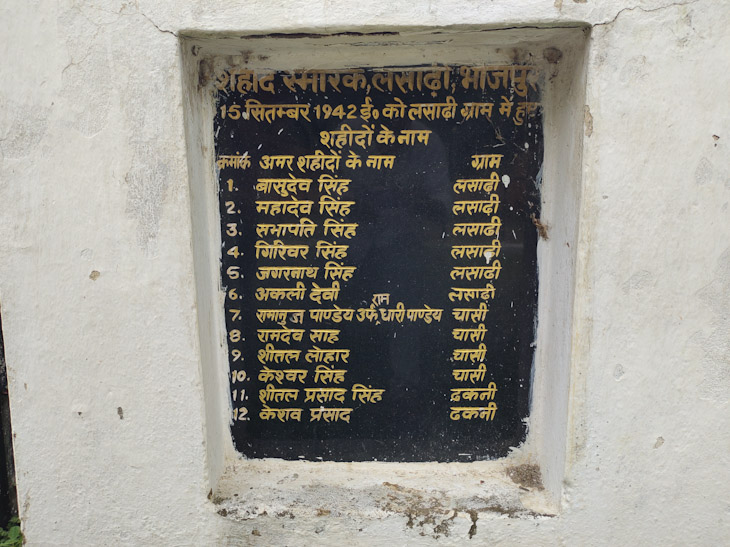 शहीद स्मारक, लसाढ़ी, भोजपुर
15 सितम्बर 1942 ई० को लसाढ़ी ग्राम में हुए
शहीदों के नाम
क्रमांक अमर शहीदों के नाम ग्राम
1. बासुदेव सिंह लसाढ़ी
2. महादेव सिंह लसाढ़ी
3. सभापति सिंह लसाढ़ी
4. गिरिवर सिंह लसाढ़ी
5. जगरनाथ सिंह लसाढ़ी
6. अकली देवी लसाढ़ी
7. रामानुज पाण्डेय उर्फ, राम धारी पाण्डेय चासी
8. रामदेव साह चासी
9. शीतल लोहार चासी
10. केश्वर सिंह चासी
11. शीतल प्रसाद सिंह ढकनी
12. केशव प्रसाद ढकनी